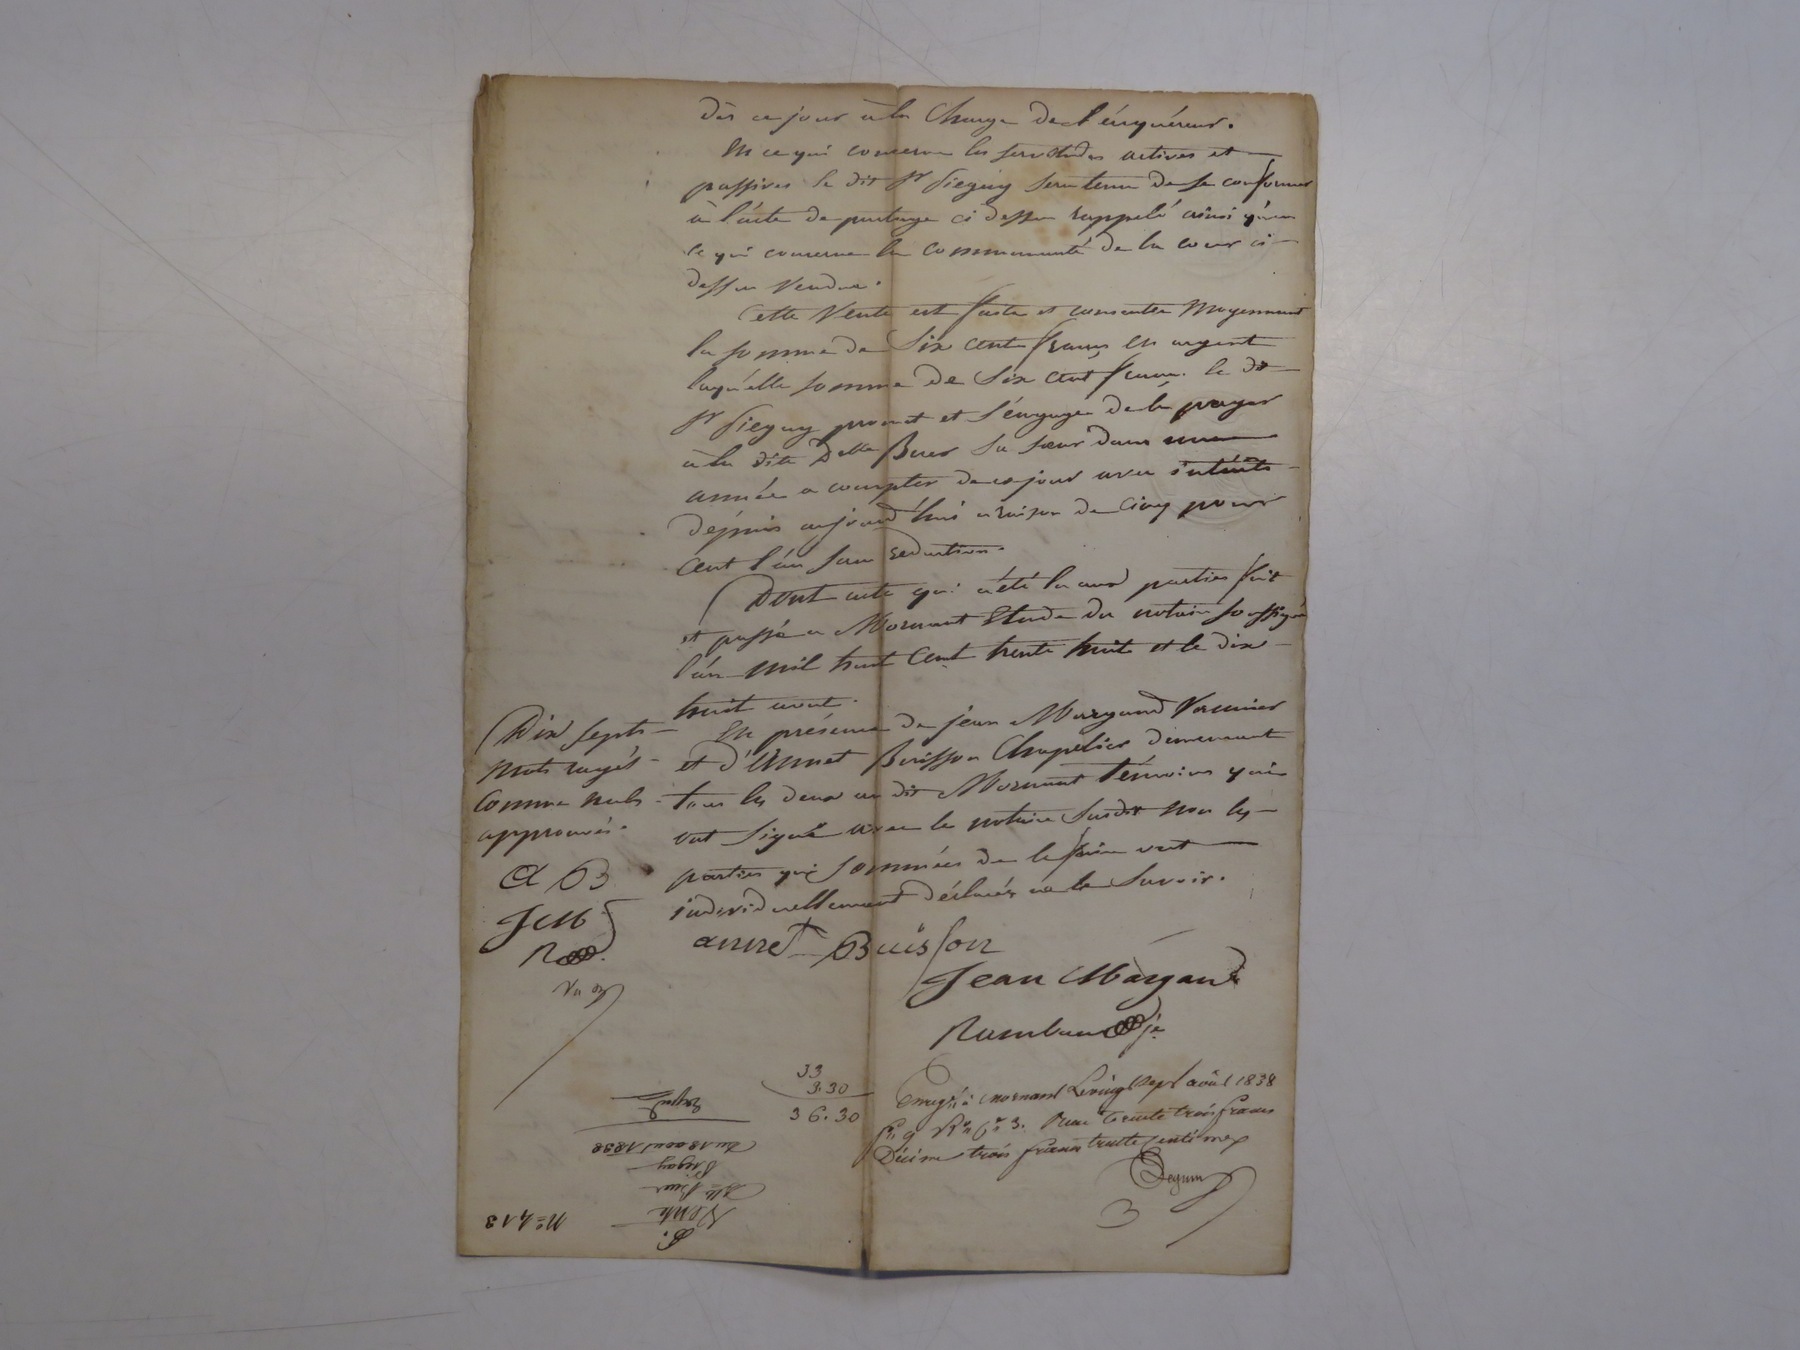 dès ce jour à la Charge de l'éxquéreur.
En ce qui concerne les servitudes actives et
passives le dit Sr Pieguy sera tenu de se conformer
à l'acte de partage ci dessus rappelé ainsi qu'en
ce qui concerne la communauté de la cour ci
dessus vendue.
Cette Vente est faite et consentie Moyennant
la somme de Six cent francs en argent
laqu'elle somme de Six cent francs le dit
Sr Pieguy promet et s'éngage de la payer
à la dite Delle Buer sa sœur dans une
année a compter de ce jour avec intérêts
dépuis aujourd'hui a raison de Cinq pour
Cent l'an sans reduction.
Dont acte qui a été lu aux parties fait
et passé a Mornant Etude du notaire soussigné
l'an mil huit Cent trente huit et le dix
huit aout.
En présence de jean Margand
et d'Annet Buisson Chapelier demeurant
tous les deux au dit Mornant témoins qui
ont Signé avec le notaire Susdit non les
parties qui Sommées de le faire ont
individuellement déclarés ne le Savoir.
Dix Septs
Mots rayés
Comme nuls
approuvés.
a B
JeM
R
annet Buisson
Jean Margand
Rambaud je
33
3.30
36.30
Enregté à mornant Levingt sept août 1838
fo 9 Ro Ce 3. Reçu trente trois francs
Décime trois francs trente centimes
Seguin
3
No 413
Vente
Delle Buer
Pieguy
du 18 aout 1838